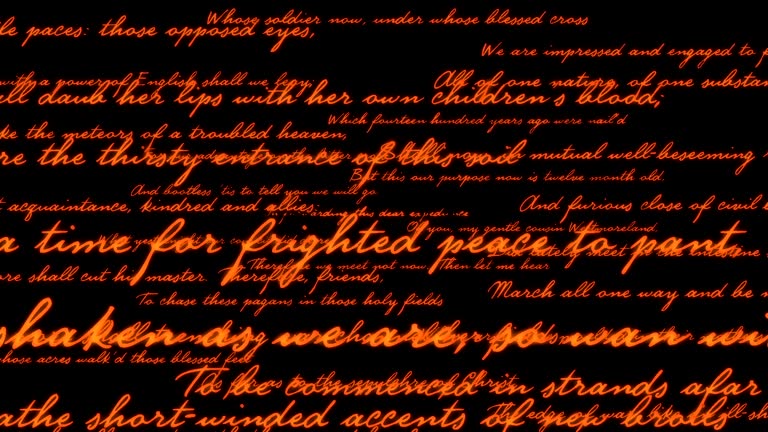 Whose soldier now, under whose blessed cross
le paces: those opposed eyes,
We are impressed and engaged to f
with a power of English shall we levy;
All of one nature, of one substan
all daub her lips with her own children's blood;
Which fourteen hundred years ago were nail'd
ke the meteors of a troubled heaven,
re the thirsty entrance of this soil
mutual well-beseeming
But this our purpose now is twelve month old,
And bootless 'tis to tell you we will go
t acquaintance, kindred and allies:
And furious close of civil
this dear expedience
Of you, my gentle cousin Westmoreland,
a time for frighted peace to pant,
Did lately meet in the intestine
Therefore we meet not now. Then let me hear
ore shall cut his master. Therefore, friends,
March all one way and be
To chase these pagans in those holy fields
shaken as we are, so wan wi
whose acres walk'd those blessed feet
As far as to the sepulchre of Christ,
To be commenced in strands afar
The edge of war, like
athe short-winded accents of new broils